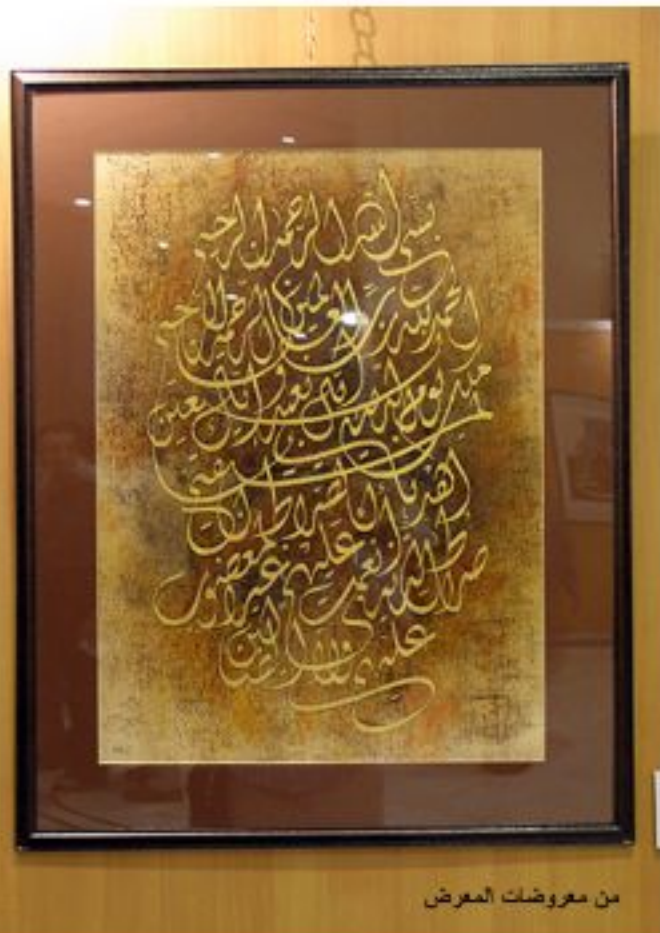 بسم الله الرحمن الرحيم
الحمد لله رب العالمين الرحمن الرحيم
ملك يوم الدين إياك نعبد وإياك نستعين
اهدنا الصراط المستقيم
صراط الذين أنعمت عليهم غير المغضوب
عليهم ولا الضالين
من معروضات المعرض